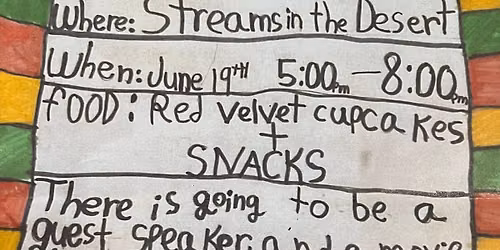 Where: Streams in the Desert
When: June 19th 5:00pm - 8:00pm
fOOD: Red velvet cupcakes
+
SNACKS
There is going to be a
guest speaker and a movie